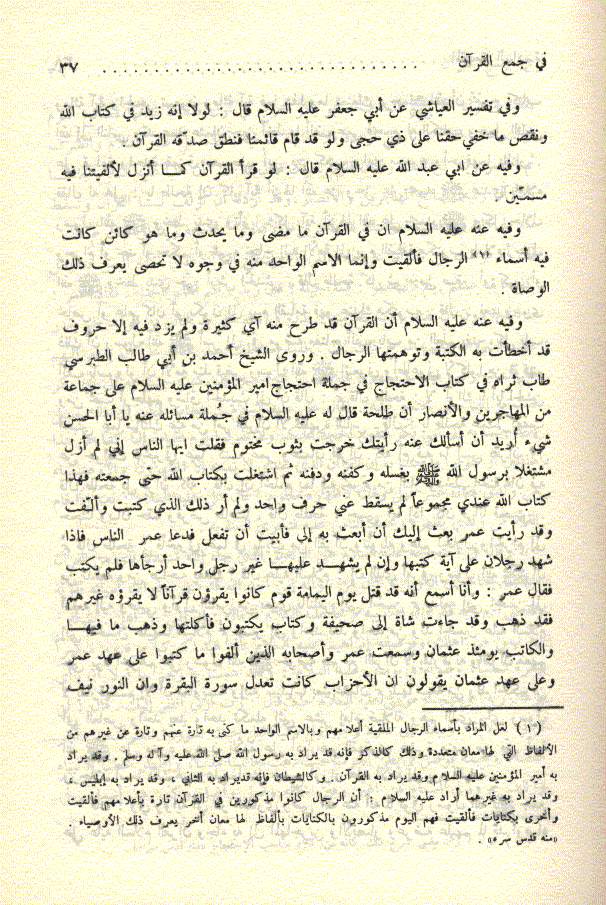 في جمع القرآن ........................ ٣٧
وفي تفسير العياشي عن أبي جعفر عليه السلام قال : لولا إنه زيد في كتاب الله
ونقص ما خفي حقنا على ذي حجى ولو قد قام قائمنا فنطق صدقه القرآن .
وفيه عن ابي عبد الله عليه السلام قال : لو قرأ القرآن كما أنزل لألفيتنا فيه
مسمّين .
وفيه عنه عليه السلام ان في القرآن ما مضى وما يحدث وما هو كائن كانت
فيه أسماء (١) الرجال فألقيت وإنما الاسم الواحد منه في وجوه لا تحصى يعرف ذلك
الوصاة .
وفيه عنه عليه السلام أن القرآن قد طرح منه آي كثيرة ولم يزد فيه إلا حروف
قد أخطأت به الكتبة وتوهمتها الرجال . وروى الشيخ أحمد بن أبي طالب الطبرسي
طاب ثراه في كتاب الاحتجاج في جملة احتجاج امير المؤمنين عليه السلام على جماعة
من المهاجرين والأنصار أن طلحة قال له عليه السلام في جُملة مسائله عنه يا أبا الحسن
شيء أريد أن أسألك عنه رأيتك خرجت بثوب مختوم فقلت ايها الناس إني لم أزل
مشتغلا برسول الله ﷺ بغسله وكفنه ودفنه ثم اشتغلت بكتاب الله حتّى جمعته فهذا
كتاب الله عندي مجموعاً لم يسقط عني حرف واحد ولم أر ذلك الذي كتبت وألّفت
وقد رأيت عمر بعث إليك أن أبعث به إلى فأبيت أن تفعل فدعا عمر الناس فاذا
شهد رجلان على آية كتبها وإن لم يشهد عليها غير رجل واحد أرجأها فلم يكتب
فقال عمر : وأنا أسمع أنه قد قتل يوم اليمامة قوم كانوا يقرؤن قرآناً لا يقرؤه غيرهم
فقد ذهب وقد جاءت شاة إلى صحيفة وكتاب يكتبون فأكلتها وذهب ما فيها
والكاتب يومئذ عثمان وسمعت عمر وأصحابه الذين ألفوا ما كتبوا على عهد عمر
وعلى عهد عثمان يقولون ان الأحزاب كانت تعدل سورة البقرة وان النور نيف
( ١ ) لعل المراد بأسماء الرجال الملقية أعلامهم وبالاسم الواحد ما كنى به تارة عنهم وتارة عن غيرهم من
الألفاظ التي لها معان متعددة وذلك كالذكر فإنه قد يراد به رسول الله صلى الله عليه وآله وسلم . وقد يراد
به أمير المؤمنين عليه السلام وقد يراد به القرآن . وكالشيطان فإنه قد يراد به الثاني ، وقد يراد به إبليس ،
وقد يراد به غيرهما أراد عليه السلام : أن الرجال كانوا مذكورين في القرآن تارة بأعلامهم فألقيت
وأخرى بكنايات فألقيت فهم اليوم مذكورون بالكنايات بألفاظ لها معان أخر يعرف ذلك الأوصياء .
«منه قدس سره» .